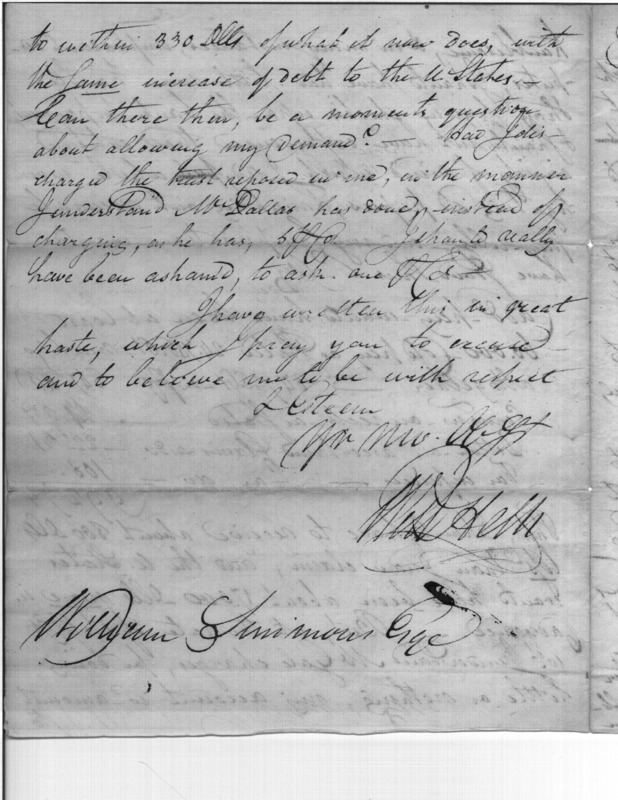 to within 330 Dlls of what it now does, with
the same increase of debt to the U States.—
Can there then, be a moments question
about allowing my demand?— Had I dis-
charged the trust reposed in me, in the manner
I understand Mr Dallas has done, instead of
charging, as he has, I should really
have been ashamed, to ask one
I have written this in great
haste, which I pray you to excuse
and to believe me to be with respect
& esteem
Yr mo. Ob St
William Simmons Esqe